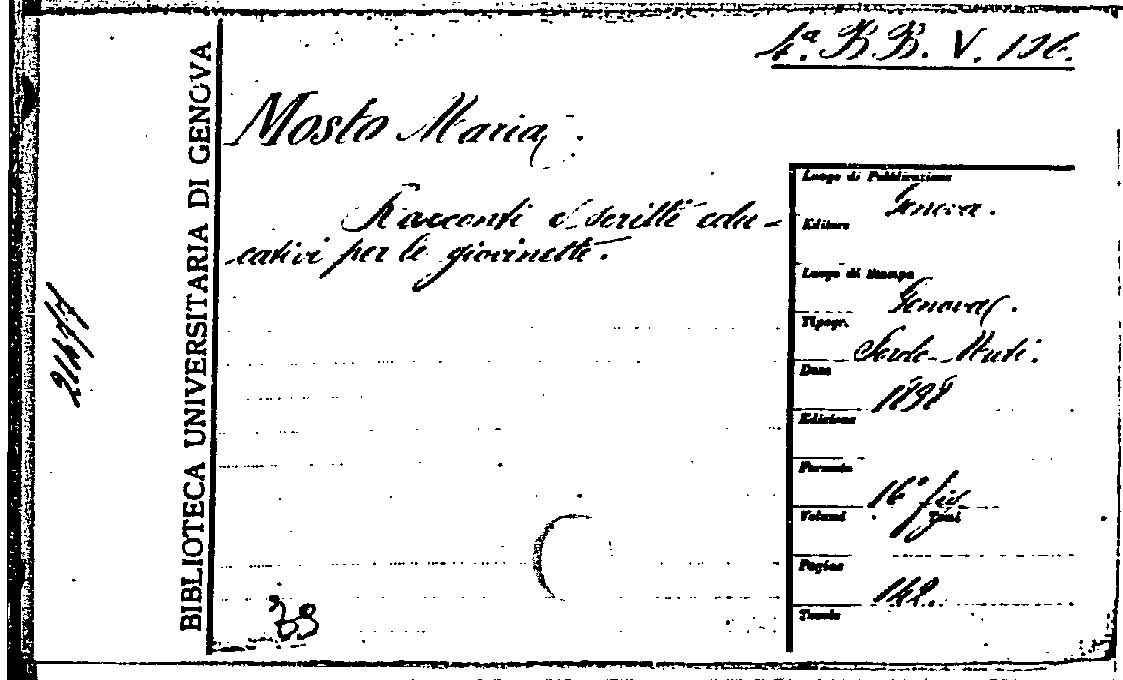 4ª. BB. V. 126.
BIBLIOTECA UNIVERSITARIA DI GENOVA
Mosto Maria.
Racconti e scritti edu-
cativi per le giovinette.
Luogo di Pubblicazione
Genova.
Editore
Luogo di Stampa
Genova.
Tipogr.
Sordo-Muti.
Data
1898
Edizione
Formato
16° fig.
Volumi Tomi
Pagine
142.
Tavole